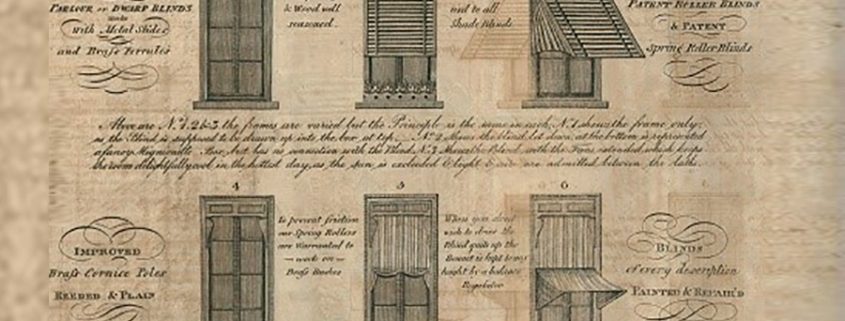 PARLOUR or DWARF BLINDS
made
with Metal Slides
and Brass Ferrules
& Wood well
seasoned
and to all
Shade Blinds
PATENT ROLLER BLINDS
& PATENT
Spring Roller Blinds
Above are N. 1, 2 & 3, the frames are varied but the Principle is the same in each, N. 1 shews the frame only,
as the Blind is supposed to be drawn up into the box at top. N. 2 shews the blind let down, at the bottom is represented
a fancy Mignonette Box, but has no connection with the Blind, N. 3 Shews the Blind with the Fans extended which keeps
the room delightfully cool in the hottest day, as the sun is excluded & light & air are admitted between the laths.
4
5
6
IMPROVED
Brass Cornice Poles
REEDED & PLAIN
To prevent friction
our Spring Rollers
are Warranted to
work on
Brass Bushes
When you do not
wish to draw the
Blind quite up the
is kept to any
height by a balance
Regulator
BLINDS
of every description
PAINTED & REPAIR'D